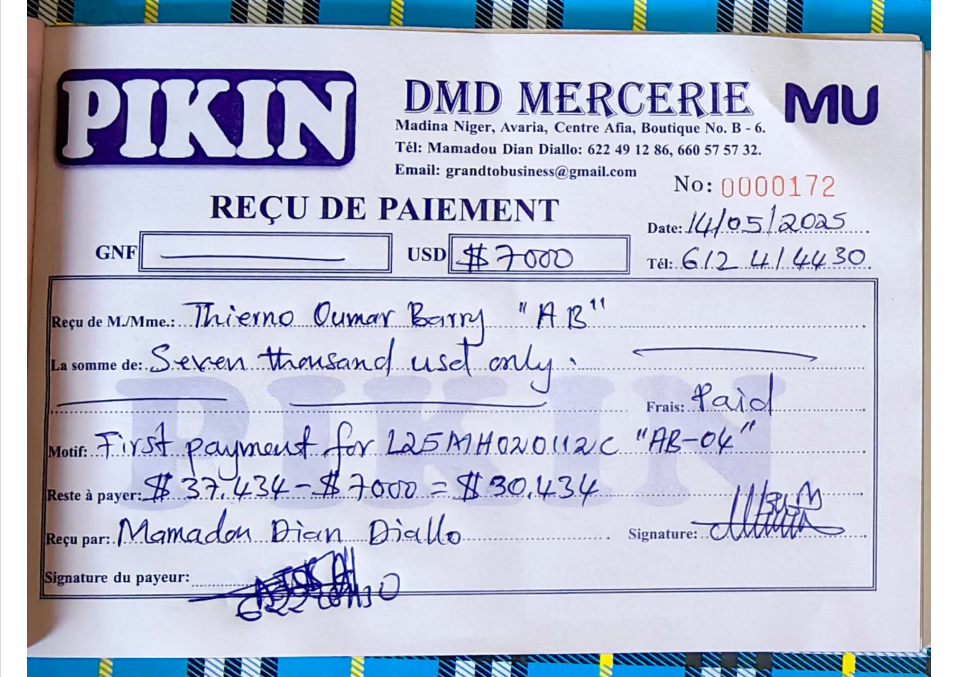 PIKIN
DMD MERCERIE
MU
Madina Niger, Avaria, Centre Afia, Boutique No. B - 6.
Tél: Mamadou Dian Diallo: 622 49 12 86, 660 57 57 32.
Email: grandtobusiness@gmail.com
No: 0000172
REÇU DE PAIEMENT
Date: 14/05/2025
GNF
USD $ 7000
Tél: 612 41 44 30
Reçu de M./Mme.: Thierno Oumar Barry "AB"
La somme de: Seven thousand usd only.
Frais: Paid
PIKIN
Motif: First payment for L25MH020112C "AB-04"
Reste à payer: $ 37.434 - $ 7000 = $ 30.434
Reçu par: Mamadou Dian Diallo
Signature:
Signature du payeur: